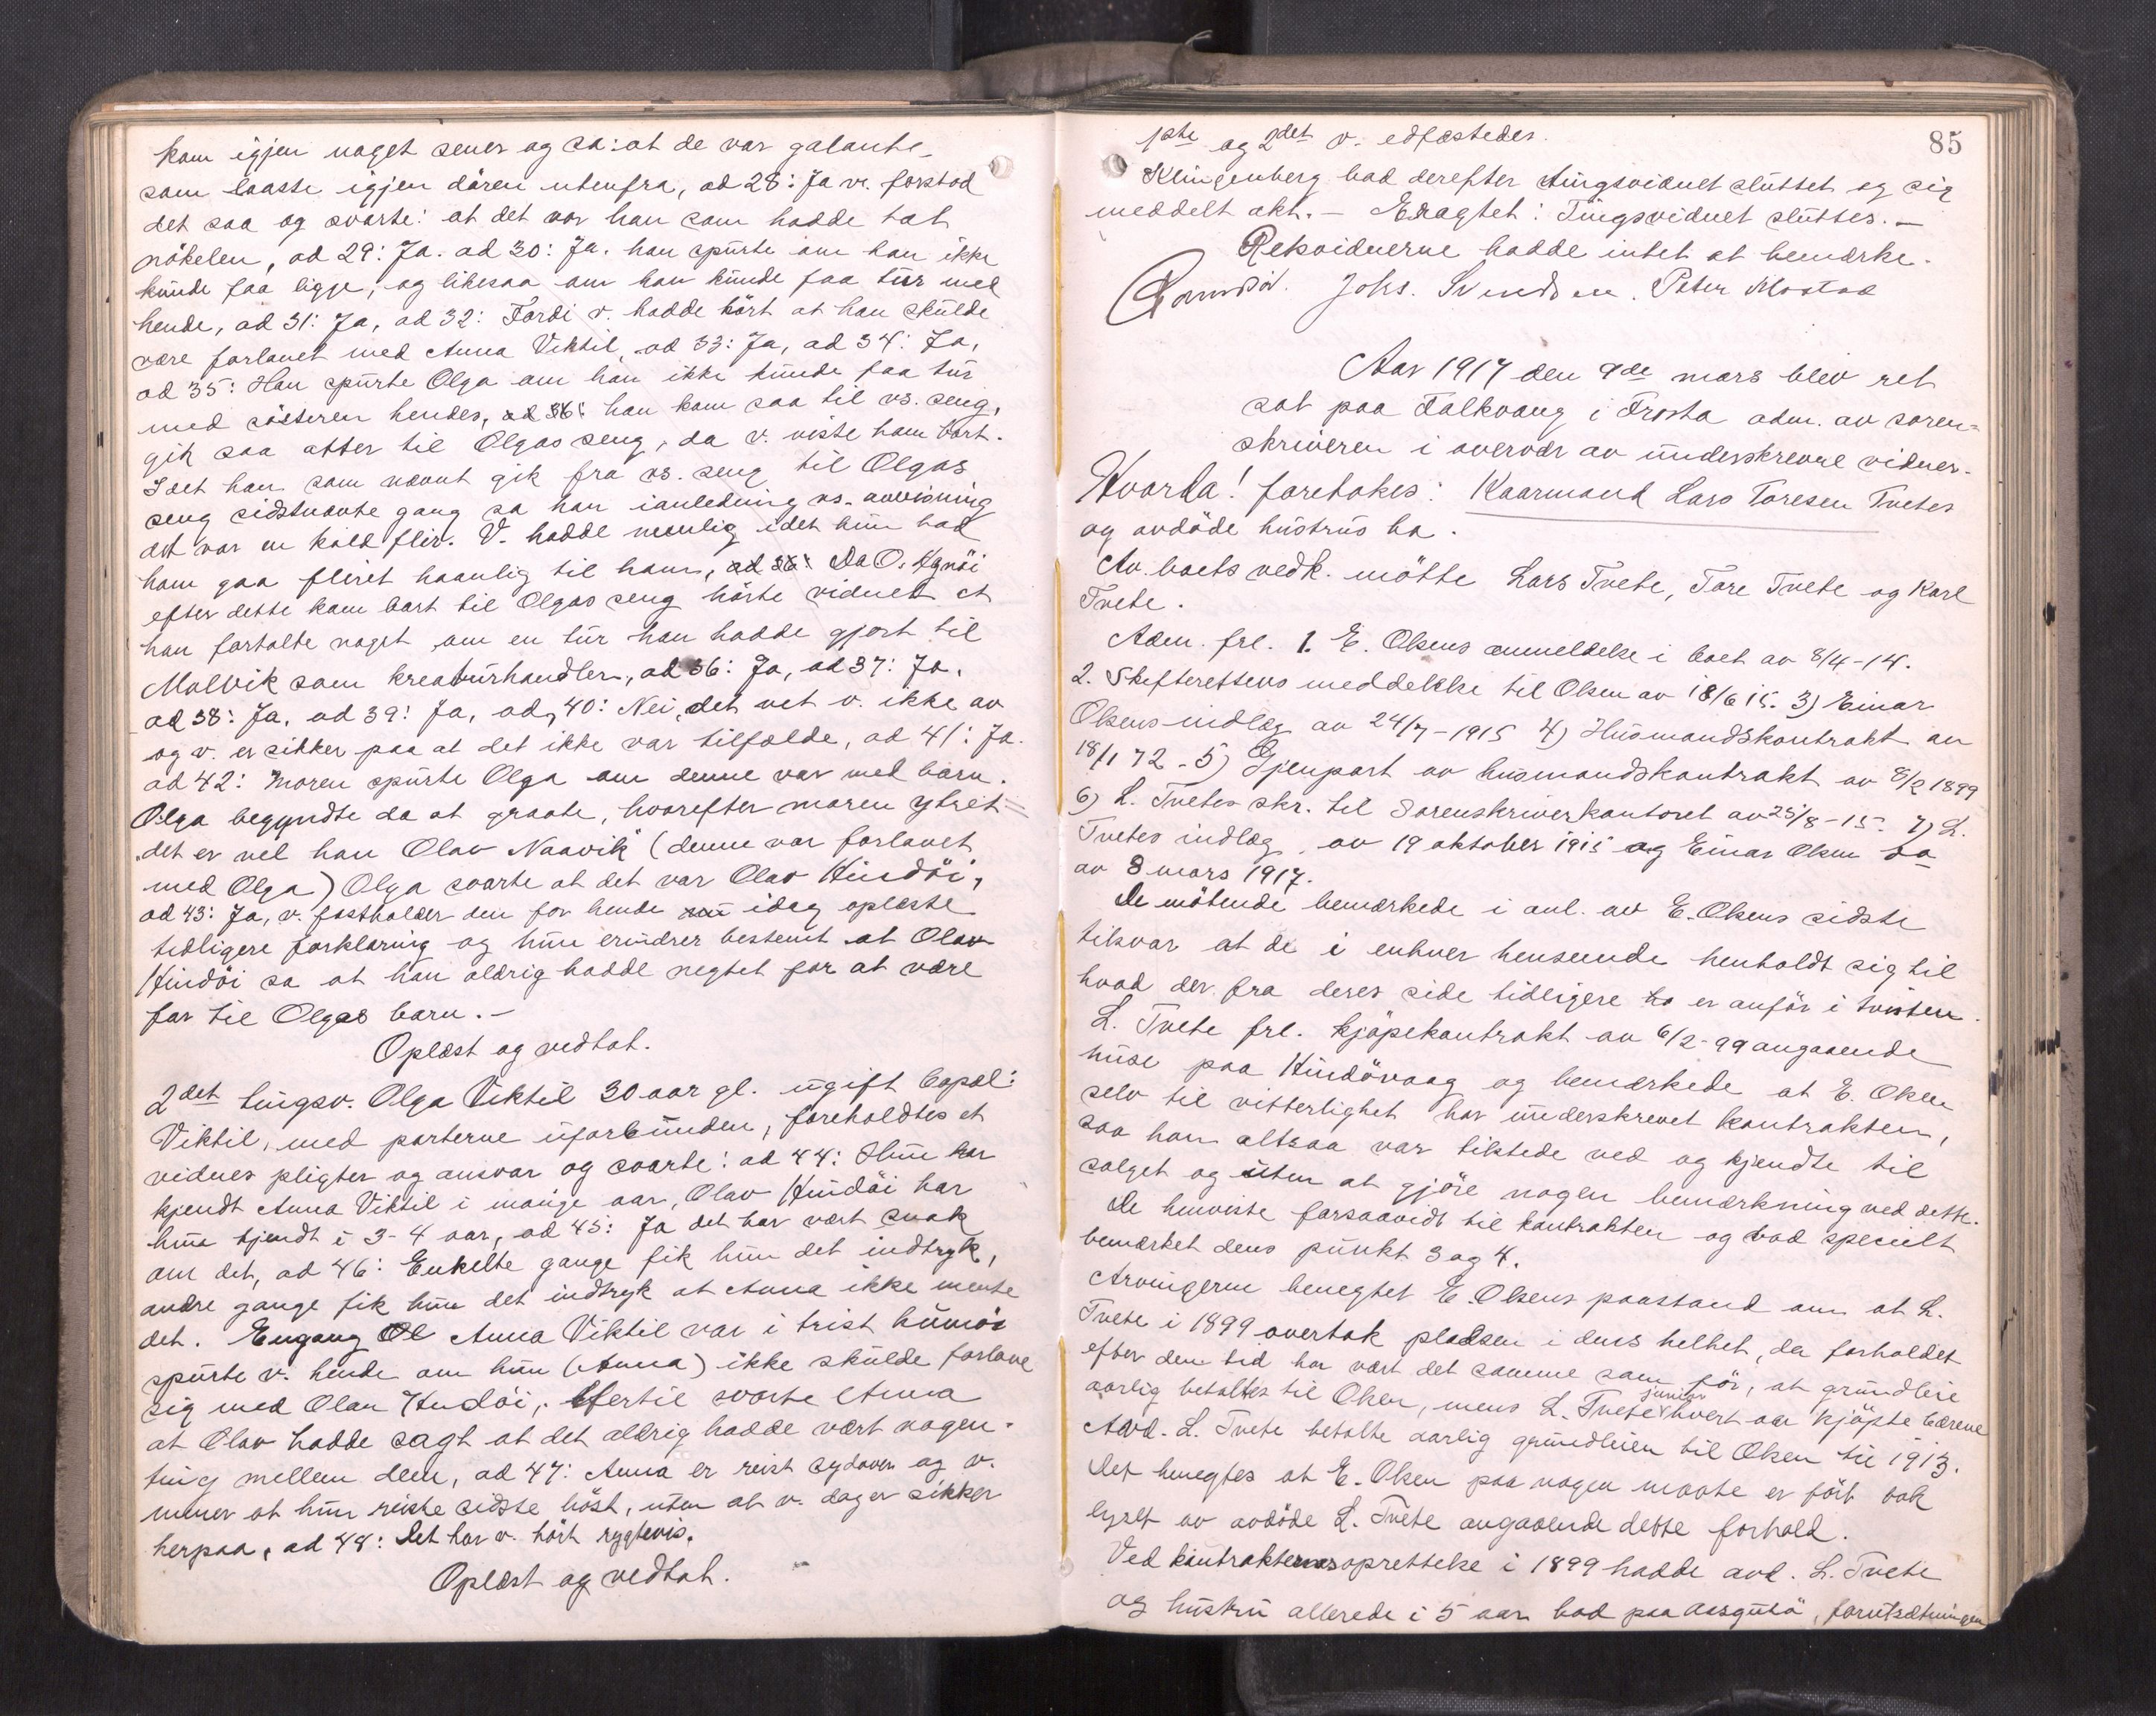 kom igjen noget sener og sa: at de var galante
som laaste igjen dören utenfra, ad 28: Ja v. forstod
det saa og svarte: at det var han som hadde tat
nökelen, ad 29: Ja. ad 30: Ja. han spurte om han ikke
kunde faa ligge, og likesaa om han kunde faa tur med
hende, ad 31: Ja, ad 32: Fordi v. hadde hört at han skulde
være forlovet med Anna Viktil, ad 33: Ja, ad 34: Ja,
ad 35: Han spurte Olga om han ikke kunde faa tur
med sösteren hendes, ad 36: han kom saa til vs. seng,
gik saa atter til Olgas seng, da v. viste ham bort.
I det han som nævnt gik fra vs. seng til Olgas
seng sidstnævnte gang sa han i anledning vs. avvisning
det var en kold flir. V. hadde nemlig idet hun bad
ham gaa fliret haanlig til ham, ad 36: Da O. Hynöi
efter dette kom bort til Olgas seng hörte vidnet at
han fortalte noget om en tur han hadde gjort til
Malvik som kreaturhandler, ad 36: Ja, ad 37: Ja.
ad 38: Ja, ad 39: Ja, ad 40: Nei, det vet v. ikke av
og v. er sikker paa at det ikke var tilfælde, ad 41: Ja.
ad 42: Moren spurte Olga om denne var med barn.
Olga begyndte da at graate, hvorefter moren ytret =
"det er vel han Olav Naavik" (denne var forlovet
med Olga) Olga svarte at det var Olav Hindöi,
ad 43: Ja, v. fastholder den for hende nu idag oplæste
tidligere forklaring og hun erindrer bestemt at Olav
Hindöi sa at han aldrig hadde negtet for at være
far til Olgas barn. -
Oplæst og vedtat.
2det tingsv. Olga Viktil 30 aar gl. ugift bopæl:
Viktil, med parterne uforbunden, foreholdtes et
vidnes pligter og ansvar og svarte: ad 44: Hun har
kjendt Anna Viktil i mange aar, Olav Hindöi har
hun kjendt i 3-4 aar, ad 45: Ja det har vært snak
om det, ad 46: Enkelte gange fik hun det indtryk,
andre gange fik hun det indtryk at Anna ikke mente
det. Engang Anna Viktil var i trist humör
spurte v. hende om hun (Anna) ikke skulde forlove
sig med Olav Hindöi, hertil svarte Anna
at Olav hadde sagt at det aldrig hadde vært nogen-
ting mellem dem, ad 47: Anna er reist sydover og v.
mener at hun reiste sidste höst, uten at v. dog er sikker
herpaa, ad 48: Det har v. hört rygtevis.
Oplæst og vedtat.
85
1ste og 2det v. edfæstedes.
Klingenberg bad derefter tingsvidnet sluttet og sig
meddelt akt. - Eragtet: Tingsvidnet sluttes. -
Retsvidnerne hadde intet at bemerke.
Johs. Svendsen. Peter Mostad
Aar 1917 den 9de mars blev ret
sat paa Falkvang i Frosta adm. av soren-
skriveren i overvær av underskrevne vidner.
Hvorda! foretokes: Kaarmand Lars Toresen Tvetes
og avdöde hustrus bo.
Av boets vedk. mötte Lars Tvete, Tore Tvete og Karl
Tvete.
Adm. frl. 1. E. Olsens anmeldelse i boet av 8/4-14.
2. Skifterettens meddelelse til Olsen av 18/6 15. 3) Einar
Olsens indlæg av 24/7-1915 4) Husmandskontrakt av
18/1 72 - 5) Gjenpart av husmandskontrakt av 8/2 1899
6) L. Tvetes skr. til Sorenskriverkontoret av 25/8-15. 7) L.
Tvetes indlæg av 19 oktober 1915 og Einar Olsen
av 8 mars 1917.
De mötende bemerkede i anl. av E. Olsens sidste
tilsvar at de i enhver henseende henholdt sig til
hvad der fra deres side tidligere er anfört i tvisten.
L. Tvete frl. kjöpekontrakt av 6/2-99 angaaende
huse paa Hindövaag og bemerkede at E. Olsen
selv til vitterlighet har underskrevet kontrakten,
saa han altsaa var tilstede ved og kjendte til
salget og uten at gjöre nogen bemerkning ved dette.
De henviste forsaavidt til kontrakten og bad specielt
bemerket dens punkt 3 og 4.
Arvingerne benegtet E. Olsens paastand om at L.
Tvete i 1899 overtok pladsen i dens helhet, da forholdet
efter den tid har vært det samme som för, at grundleie
aarlig betaltes til Olsen, mens L. Tvete junior hvert aar kjöpte bærene
Avd. L. Tvete betalte aarlig grundleien til Olsen til 1913.
Det benegtes at E. Olsen paa nogen maate er fört bak
lyset av avdöde L. Tvete angaaende dette forhold.
Ved kontraktens oprettelse i 1899 hadde avd. L. Tvete
og hustru allerede i 5 aar bod paa Aasgutö, forutsætningen